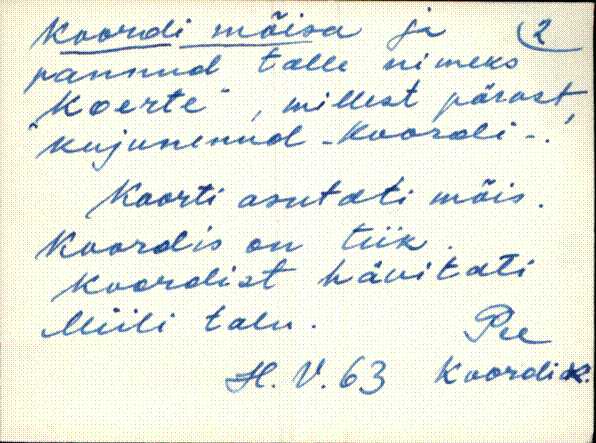 Koordi mõisa ja 2
pannud talle nimeks
"Koerte", millest pärast,
kujunenud - Koordi -.
Koorti asutati mõis.
Koordis on tiik.
Koordist hävitati
Miili talu.
Pee
H. V. 63 Koordi k.